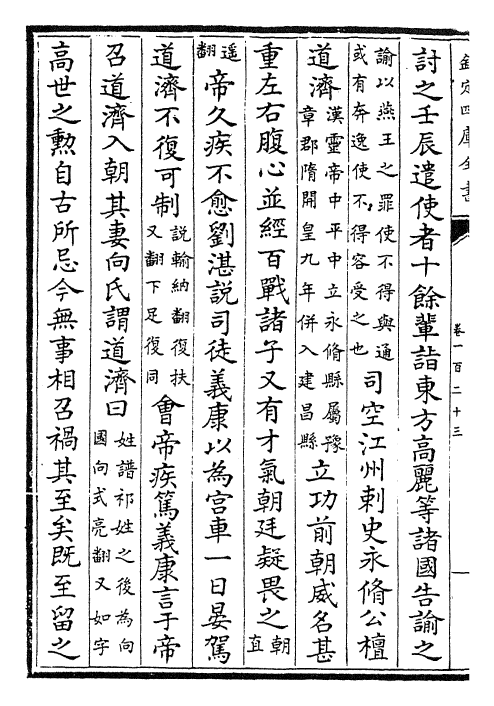 欽定四庫全書
卷一百二十三
討之壬辰遣使者十餘輩詣東方高麗等諸國告諭之
諭以燕王之罪使不得與通
或有奔逸使不得容受之也
司空江州刺史永脩公檀
道濟
漢靈帝中平中立永脩縣屬豫
章郡隋開皇九年併入建昌縣
立功前朝威名甚
重左右腹心並經百戰諸子又有才氣朝廷疑畏之
朝
直
遥
翻
帝久疾不愈劉湛說司徒義康以為宫車一日晏駕
道濟不復可制
說輸納翻復扶
又翻下足復同
會帝疾篤義康言于帝
召道濟入朝其妻向氏謂道濟曰
姓譜祁姓之後為向
國向式亮翻又如字
高世之勲自古所忌今無事相召禍其至矣既至留之